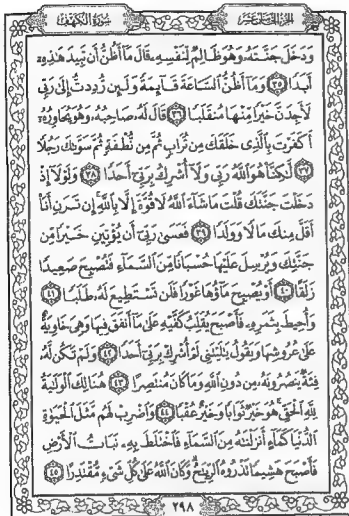 سُورَةُ الكَهْفِ
الجُزْءُ الخَامِسَ عَشَرَ
وَدَخَلَ جَنَّتَهُۥ وَهُوَ ظَالِمٌ لِّنَفْسِهِۦ قَالَ مَآ أَظُنُّ أَن تَبِيدَ هَٰذِهِۦٓ
أَبَدًا ﴿٣٥﴾ وَمَآ أَظُنُّ ٱلسَّاعَةَ قَآئِمَةً وَلَئِن رُّدِدتُّ إِلَىٰ رَبِّى
لَأَجِدَنَّ خَيْرًا مِّنْهَا مُنقَلَبًا ﴿٣٦﴾ قَالَ لَهُۥ صَاحِبُهُۥ وَهُوَ يُحَاوِرُهُۥٓ
أَكَفَرْتَ بِٱلَّذِى خَلَقَكَ مِن تُرَابٍ ثُمَّ مِن نُّطْفَةٍ ثُمَّ سَوَّىٰكَ رَجُلًا
﴿٣٧﴾ لَّٰكِنَّا۠ هُوَ ٱللَّهُ رَبِّى وَلَآ أُشْرِكُ بِرَبِّىٓ أَحَدًا ﴿٣٨﴾ وَلَوْلَآ إِذْ
دَخَلْتَ جَنَّتَكَ قُلْتَ مَا شَآءَ ٱللَّهُ لَا قُوَّةَ إِلَّا بِٱللَّهِ إِن تَرَنِ أَنَا۠
أَقَلَّ مِنكَ مَالًا وَوَلَدًا ﴿٣٩﴾ فَعَسَىٰ رَبِّىٓ أَن يُؤْتِيَنِ خَيْرًا مِّن
جَنَّتِكَ وَيُرْسِلَ عَلَيْهَا حُسْبَانًا مِّنَ ٱلسَّمَآءِ فَتُصْبِحَ صَعِيدًا
زَلَقًا ﴿٤٠﴾ أَوْ يُصْبِحَ مَآؤُهَا غَوْرًا فَلَن تَسْتَطِيعَ لَهُۥ طَلَبًا ﴿٤١﴾
وَأُحِيطَ بِثَمَرِهِۦ فَأَصْبَحَ يُقَلِّبُ كَفَّيْهِ عَلَىٰ مَآ أَنفَقَ فِيهَا وَهِىَ خَاوِيَةٌ
عَلَىٰ عُرُوشِهَا وَيَقُولُ يَٰلَيْتَنِى لَمْ أُشْرِكْ بِرَبِّىٓ أَحَدًا ﴿٤٢﴾ وَلَمْ تَكُن لَّهُۥ
فِئَةٌ يَنصُرُونَهُۥ مِن دُونِ ٱللَّهِ وَمَا كَانَ مُنتَصِرًا ﴿٤٣﴾ هُنَالِكَ ٱلْوَلَٰيَةُ
لِلَّهِ ٱلْحَقِّ هُوَ خَيْرٌ ثَوَابًا وَخَيْرٌ عُقْبًا ﴿٤٤﴾ وَٱضْرِبْ لَهُم مَّثَلَ ٱلْحَيَوٰةِ
ٱلدُّنْيَا كَمَآءٍ أَنزَلْنَٰهُ مِنَ ٱلسَّمَآءِ فَٱخْتَلَطَ بِهِۦ نَبَاتُ ٱلْأَرْضِ
فَأَصْبَحَ هَشِيمًا تَذْرُوهُ ٱلرِّيَٰحُ وَكَانَ ٱللَّهُ عَلَىٰ كُلِّ شَىْءٍ مُّقْتَدِرًا ﴿٤٥﴾
٢٩٨